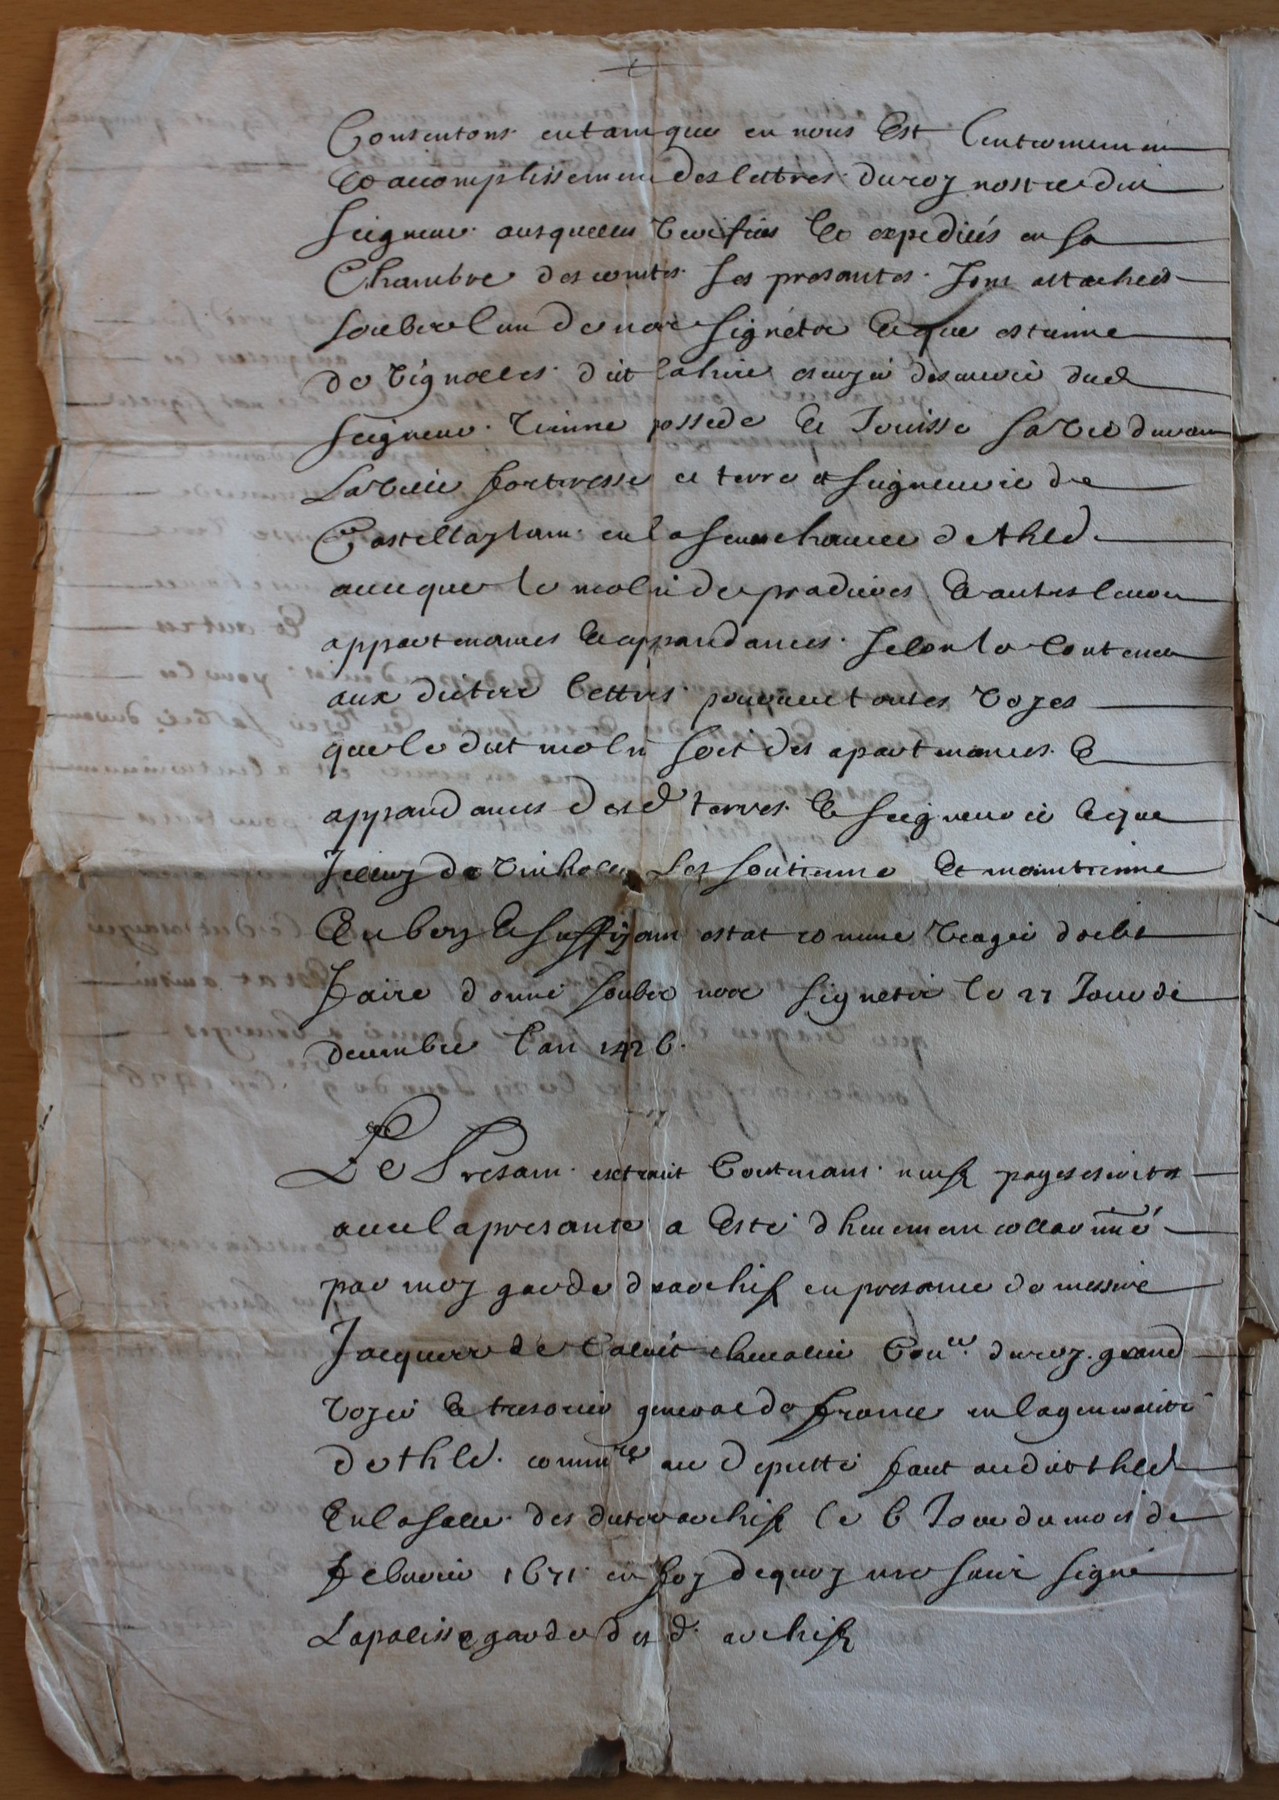 Consentons entamque en nous Est lenterinement
Et acomplissement des lettres du roy nostre dit
Seigneur ausquelles verifiees Et expediés en sa
Chambre des comtes ses presantes sont attachees
soubz lun de noz signetz Et que estienne
de vignoles dict lahire escuyer descurie dud
seigneur tienne possede Et Jouisse sa vie durant
la ville forteresse et terre et seigneurie de
Casteltaylan en la seneschaucee de thle
avecque le molin de pradieres Et autres leurs
appartenances Et appandances selon la contenu
aux dictes lettres pourveu toutes voyes
que le dict molin soit des apartenances Et
appandances desd terres Et seigneurie Et que
Jcelluy de vinholes les soutienne Et maintienne
En bon Et suffisant estat comme viager doibt
faire donné soubz noz signetz le 21 Jour de
decembre l'an 1426.
Le Presant extraict contenant neuf pages escrites
avec la presante a esté dheuement collationné
par moy garde des archifs en presance de messire
Jacques de Calvet chevalier Coner du roy grand
voyer Et tresorier general de france en la generalité
de thle commre a ce deputté faict aud thle
En la salle des dictes archifs le 6 Jour du mois de
febvrier 1671 en foy de quoy me suis signé
Lapalisse garde desd archifs